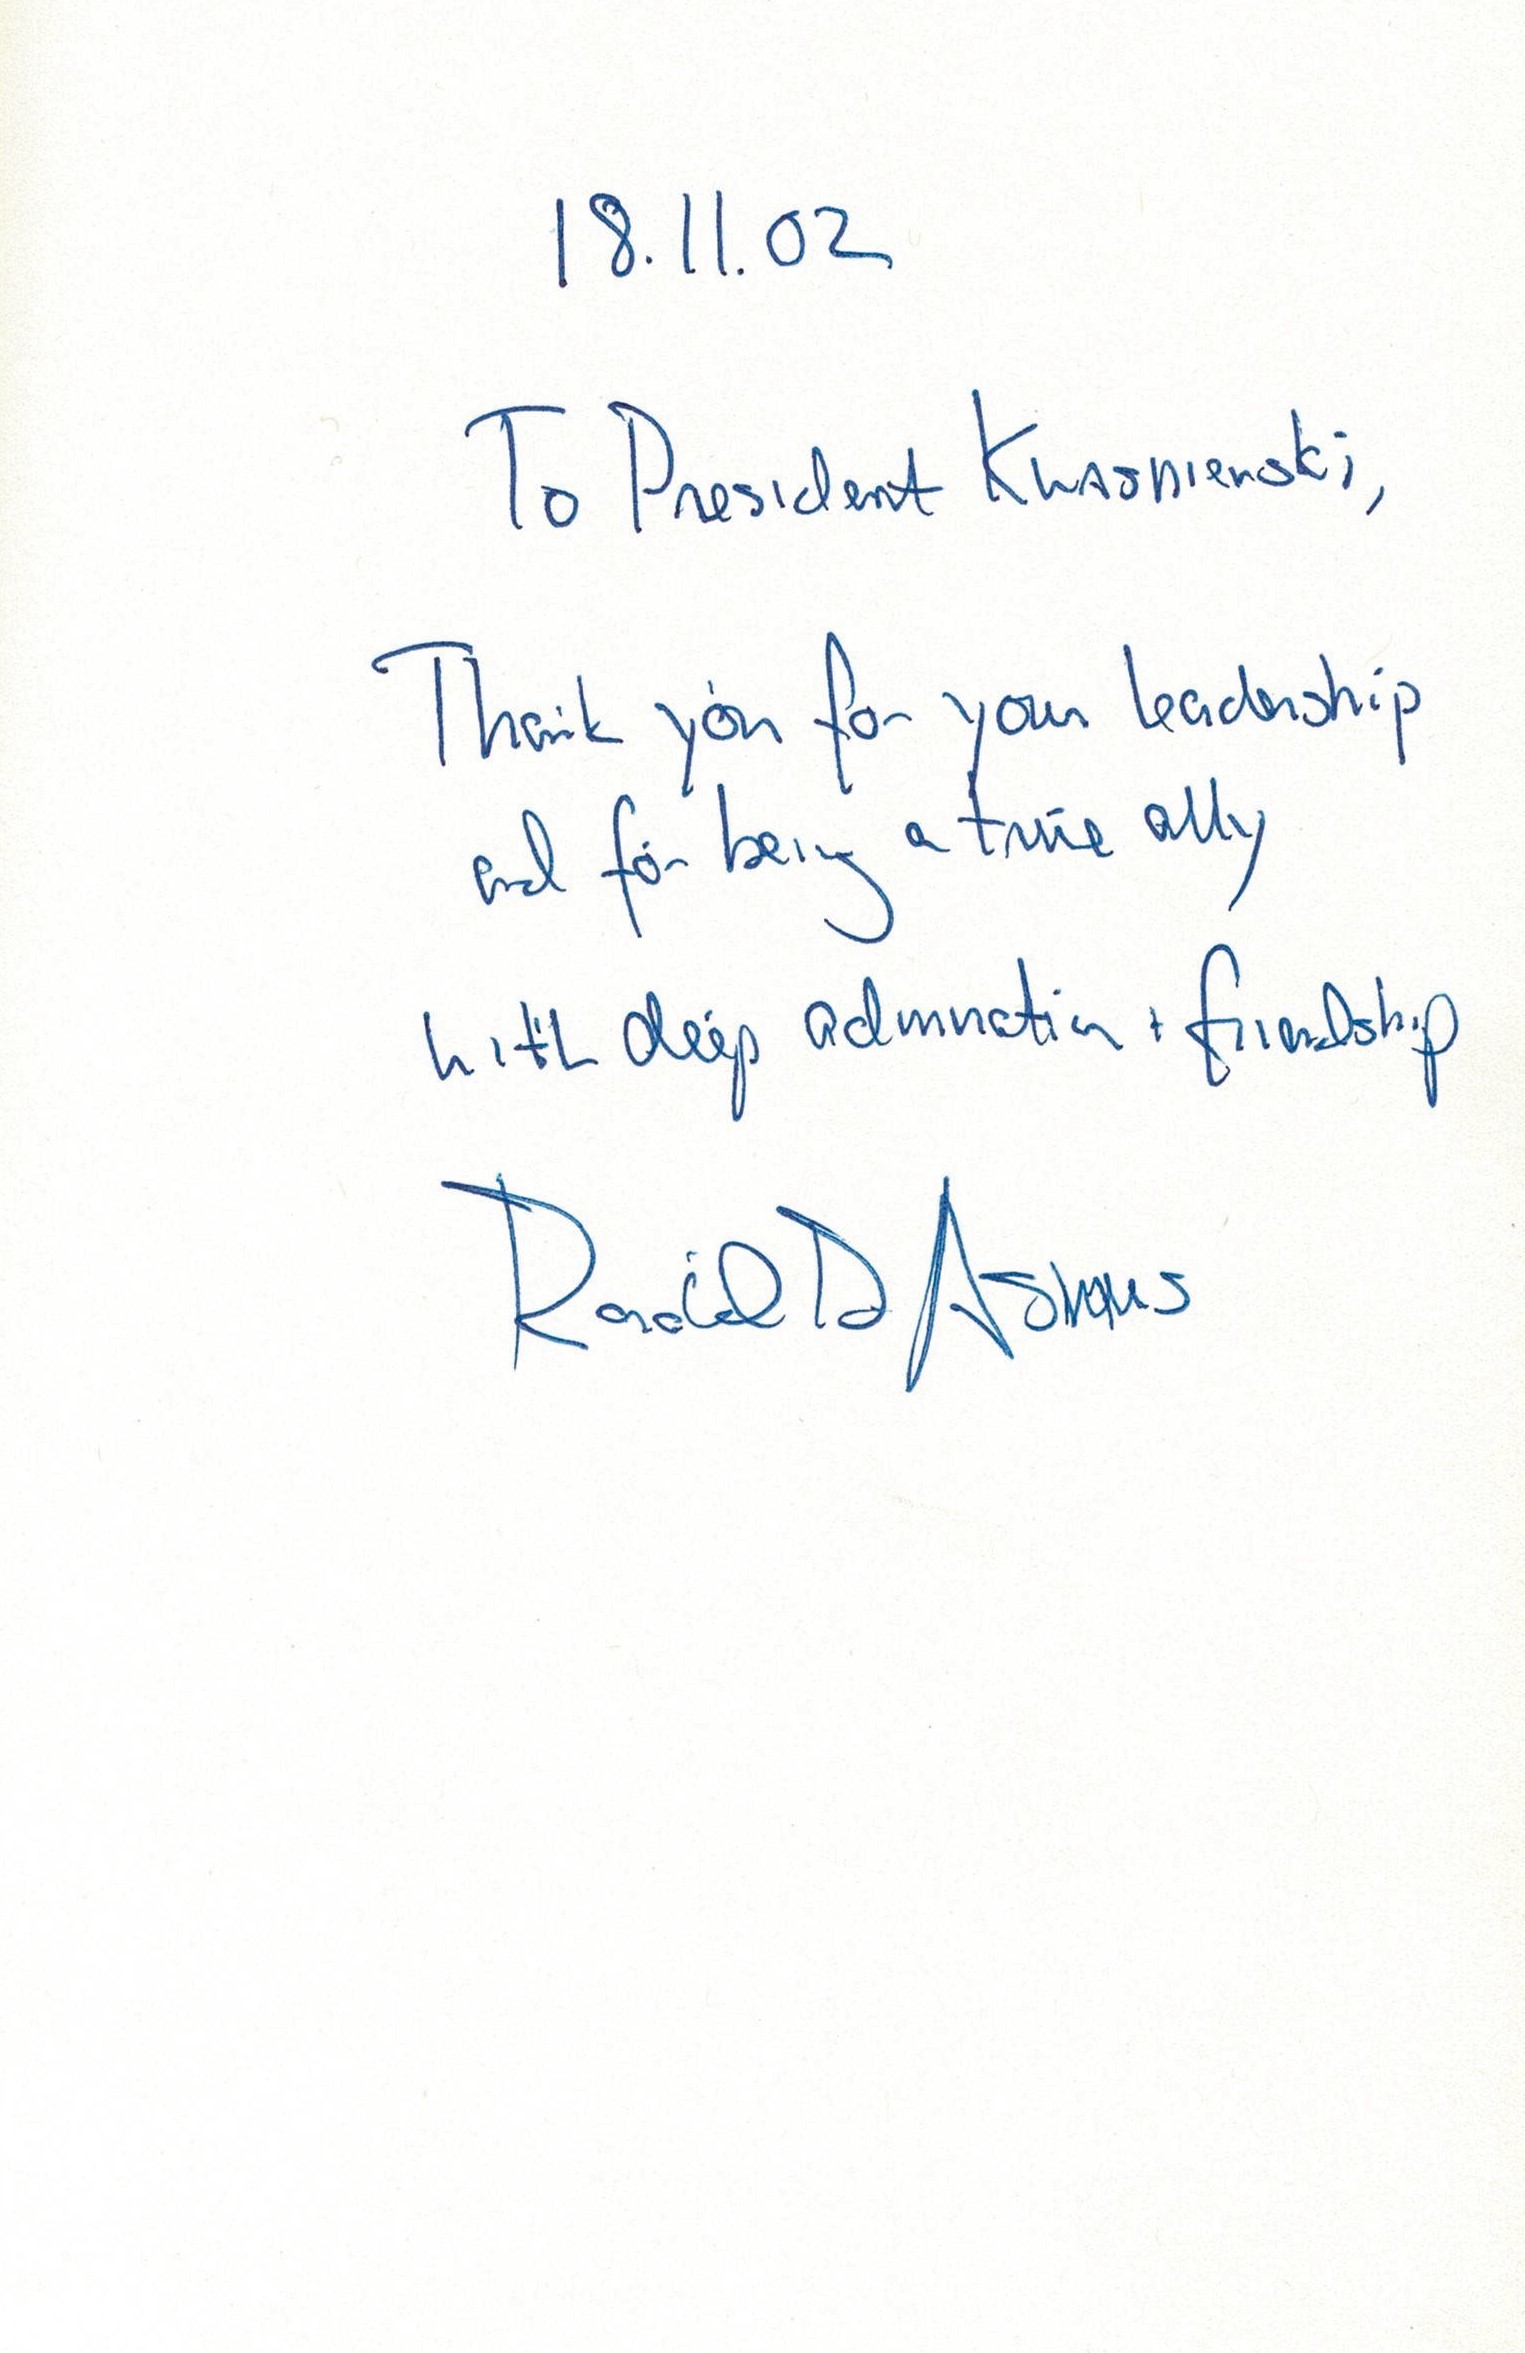 18.11.02
To President Kwasnienski,
Thank you for your leadership
and for being a true ally
with deep admiration + friendship
Ronald D Asmus